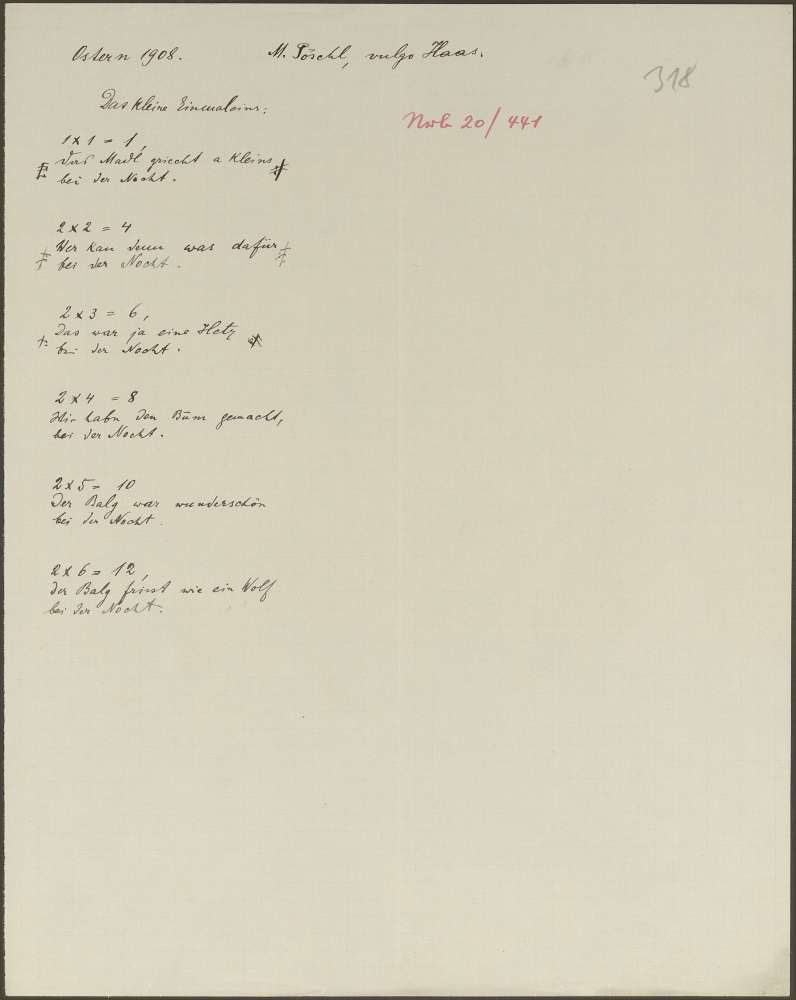 Ostern 1908. M. Pöschl, vulgo Haas.
318
Das kleine Einmaleins:
Nwb 20/441
1 x 1 = 1,
Das Madl griecht a Kleins
bei der Nocht.
2 x 2 = 4
Wer kan denn was dafür
bei der Nocht.
2 x 3 = 6,
Das war ja eine Hetz
bei der Nocht.
2 x 4 = 8
habn den Bum gemacht,
bei der Nocht.
2 x 5 = 10
Der Balg war wunderschön
bei der Nocht.
2 x 6 = 12,
Der Balg frisst wie ein Wolf
bei der Nocht.